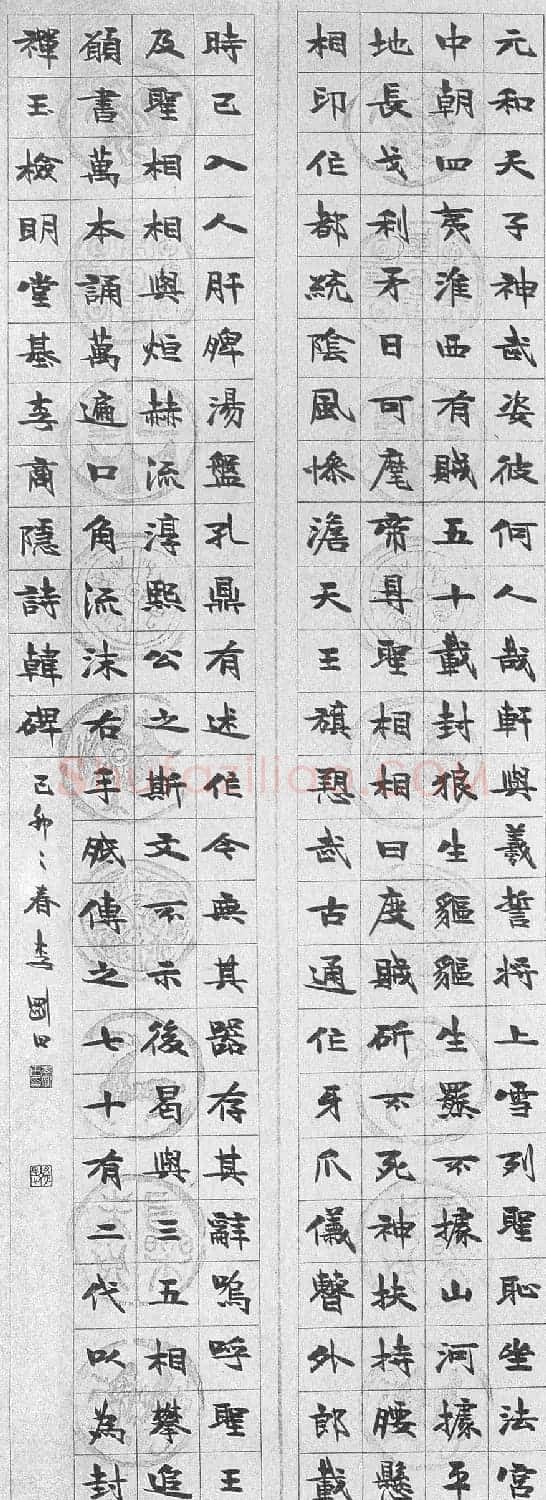 元和天子神武姿彼何人哉軒與羲誓將上雪列聖恥坐法宮
中朝四夷淮西有賊五十載封狼生貙貙生羆不據山河據平
地長戈利矛日可麾帝㝵聖相相曰度賊斫不死神扶持腰懸
相印作都統陰風慘澹天王旗愬武古通作牙爪儀曹外郎載
時已入人肝脾湯盤孔鼎有述作今無其器存其辭嗚呼聖王
及聖相相與烜赫流淳熙公之斯文不示後曷與三五相攀追
願書萬本誦萬遍口角流沫右手胝傳之七十有二代以為封
禪玉檢明堂基李商隱詩韓碑
己卯之春李國田
Shufaziliao.COM